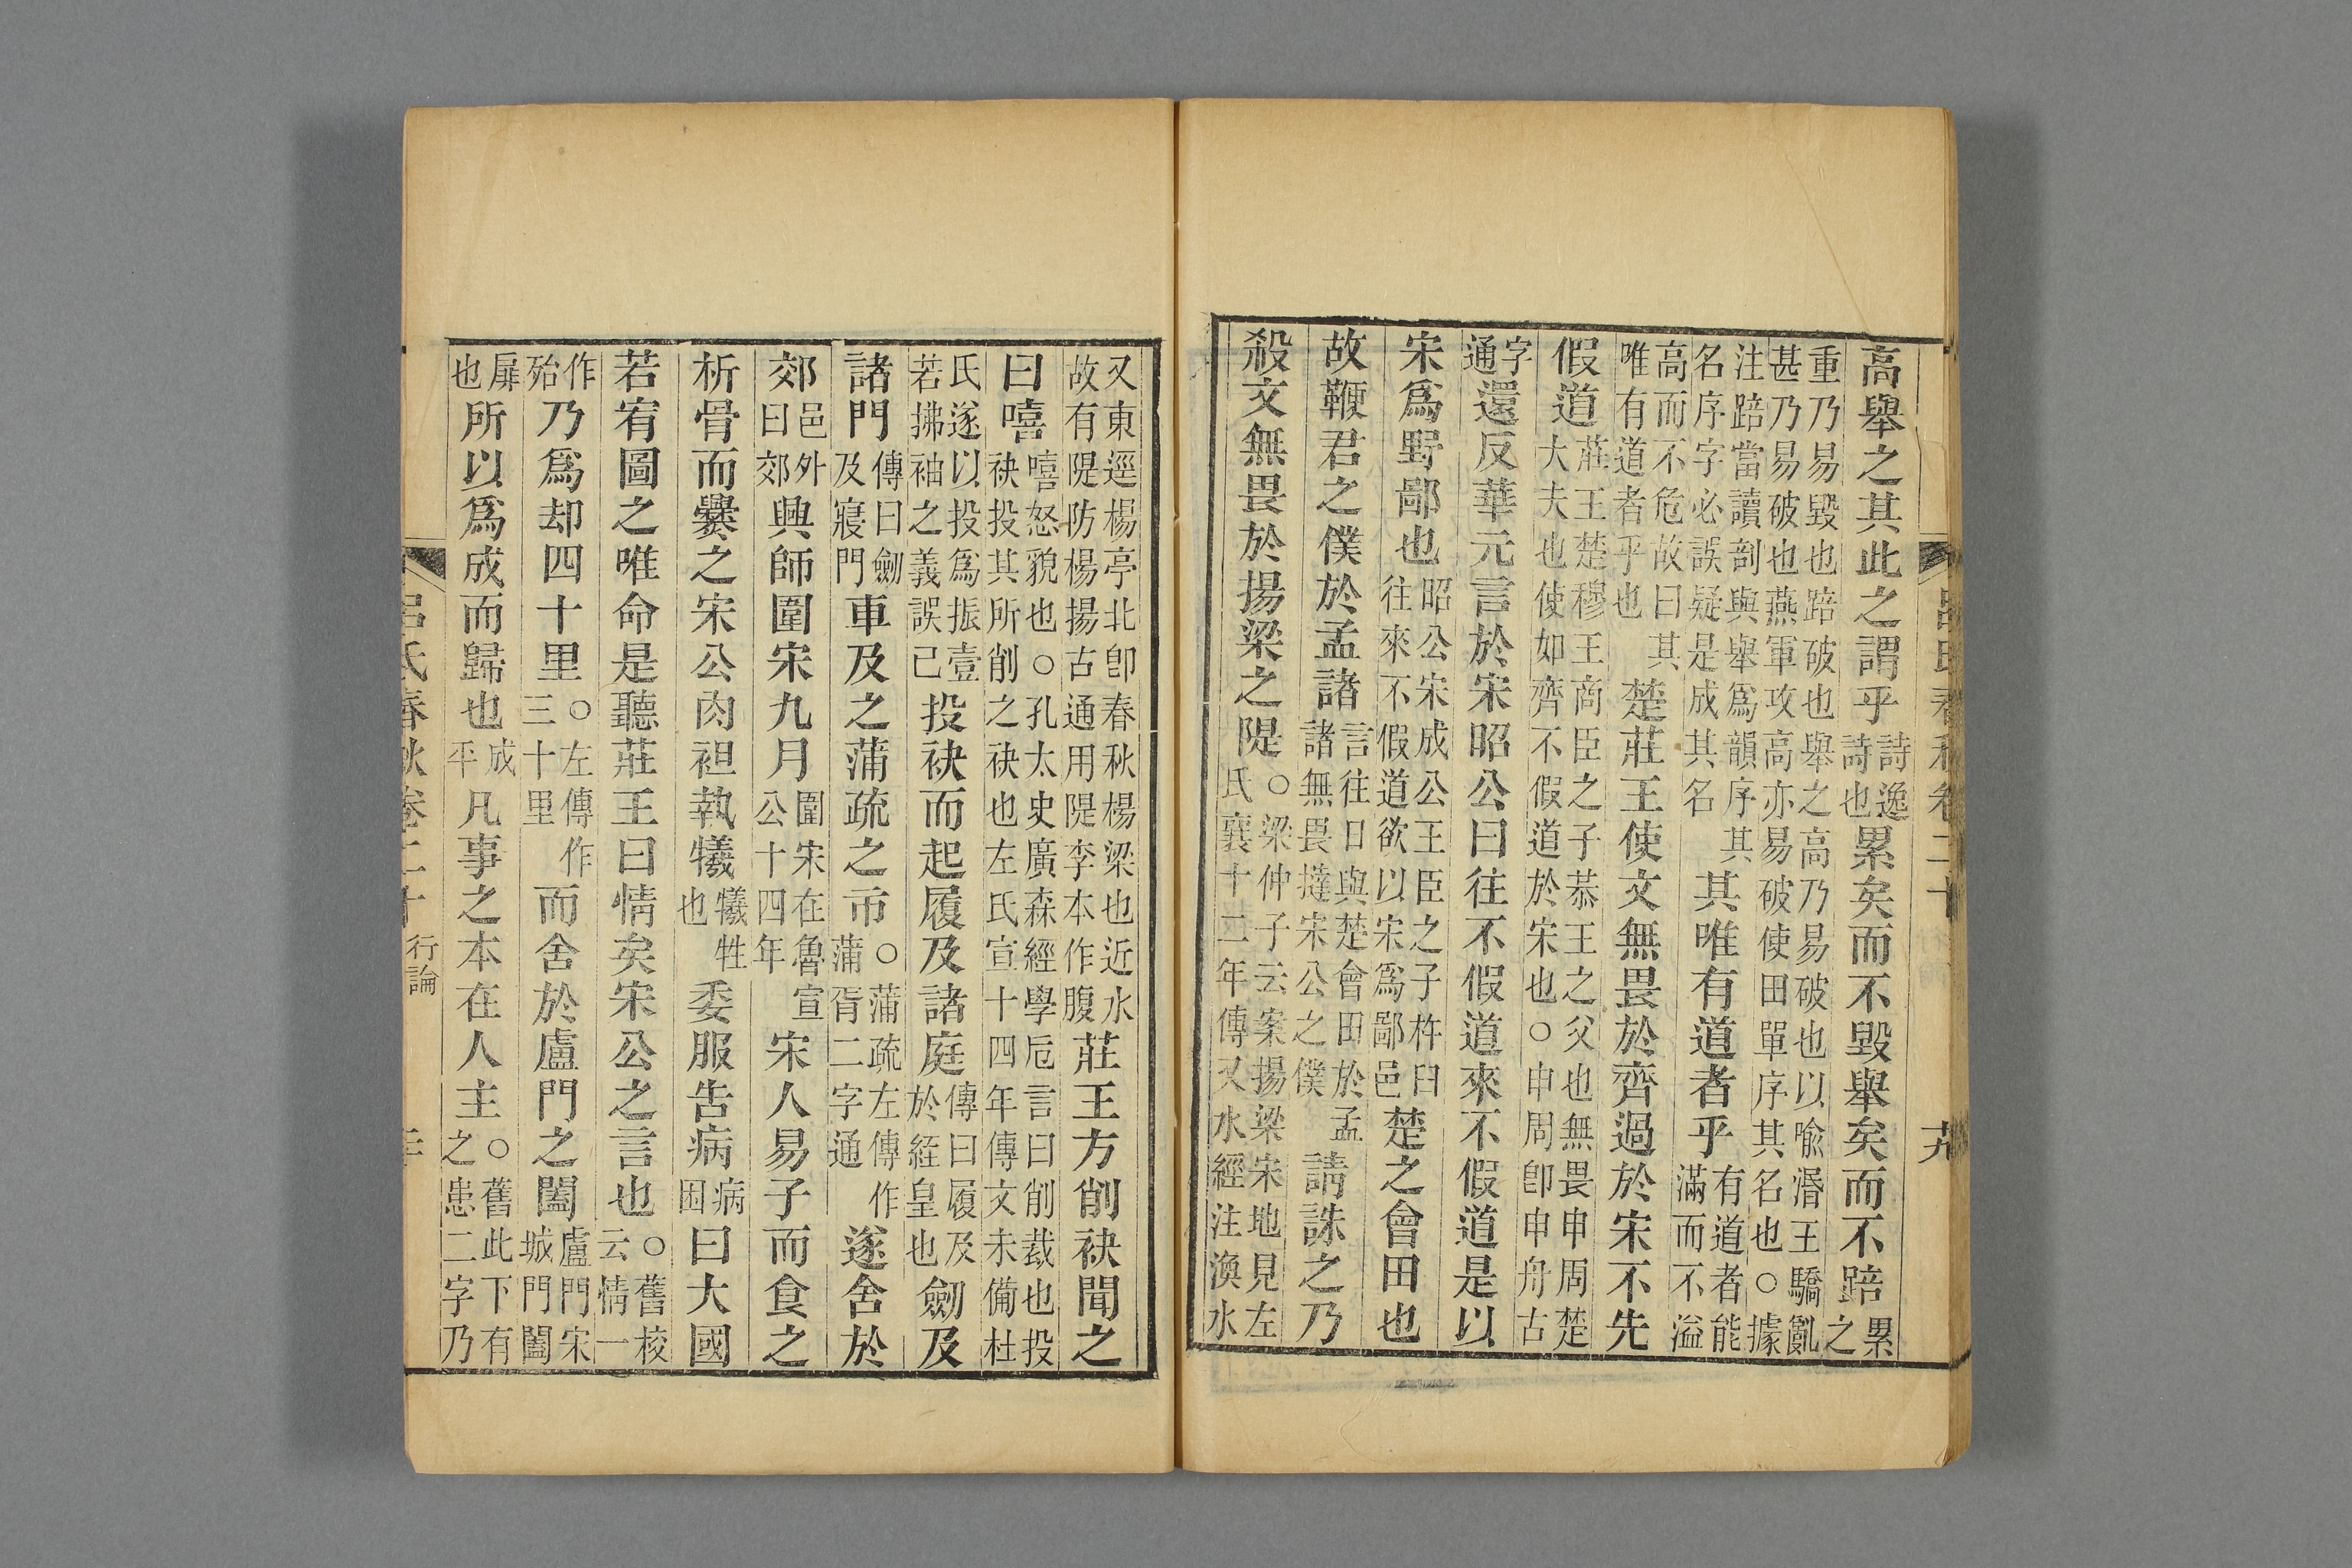 高舉之其此之謂乎詩逸詩也累矣而不毀舉矣而不踣累之
重乃易毀也踣破也舉之高乃易破也以喻湣王驕亂
甚乃易破也燕軍攻高亦易破使田單序其名也○據
注踣當讀剖與舉爲韻序其名序字必誤疑是成其名其唯有道者乎有道者能滿而不溢
高而不危故曰其唯有道者乎也楚莊王使文無畏於齊過於宋不先
假道莊王楚穆王王商臣之子恭王之父也無畏申周楚大夫也使如齊不假道於宋也○申周卽申舟古
字通還反華元言於宋昭公曰往不假道來不假道是以
宋爲野鄙也昭公宋成公王臣之子杵臼往來不假道欲以宋爲鄙邑楚之會田也
故鞭君之僕於孟諸言往日與楚會田於孟諸無畏撻宋公之僕請誅之乃
殺文無畏於揚梁之隄○梁仲子云案揚梁宋地見左氏襄十二年傳又水經注渙水
又東逕楊亭北卽春秋楊梁也近水故有隄防楊揚古通用隄李本作腹莊王方削袂聞之
曰嘻嘻怒貌也○孔太史廣森經學卮言曰削裁也投袂投其所削之袂也左氏宣十四年傳文未備杜
氏遂以投爲振壹若拂袖之義誤已投袂而起履及諸庭傳曰履及於絰皇也劒及
諸門傳曰劒及寢門車及之蒲疏之市○蒲疏左傳作蒲胥二字通遂舍於
郊邑外曰郊興師圍宋九月圍宋在魯宣公十四年宋人易子而食之
析骨而爨之宋公肉袒執犧犧牲也委服告病病困曰大國
若宥圖之唯命是聽莊王曰情矣宋公之言也○舊校云情一
作殆乃爲却四十里○左傳作三十里而舍於盧門之闔盧門宋城門闔
扉也所以爲成而歸也成平凡事之本在人主○舊此下有之患二字乃
呂氏春秋卷二十 行論